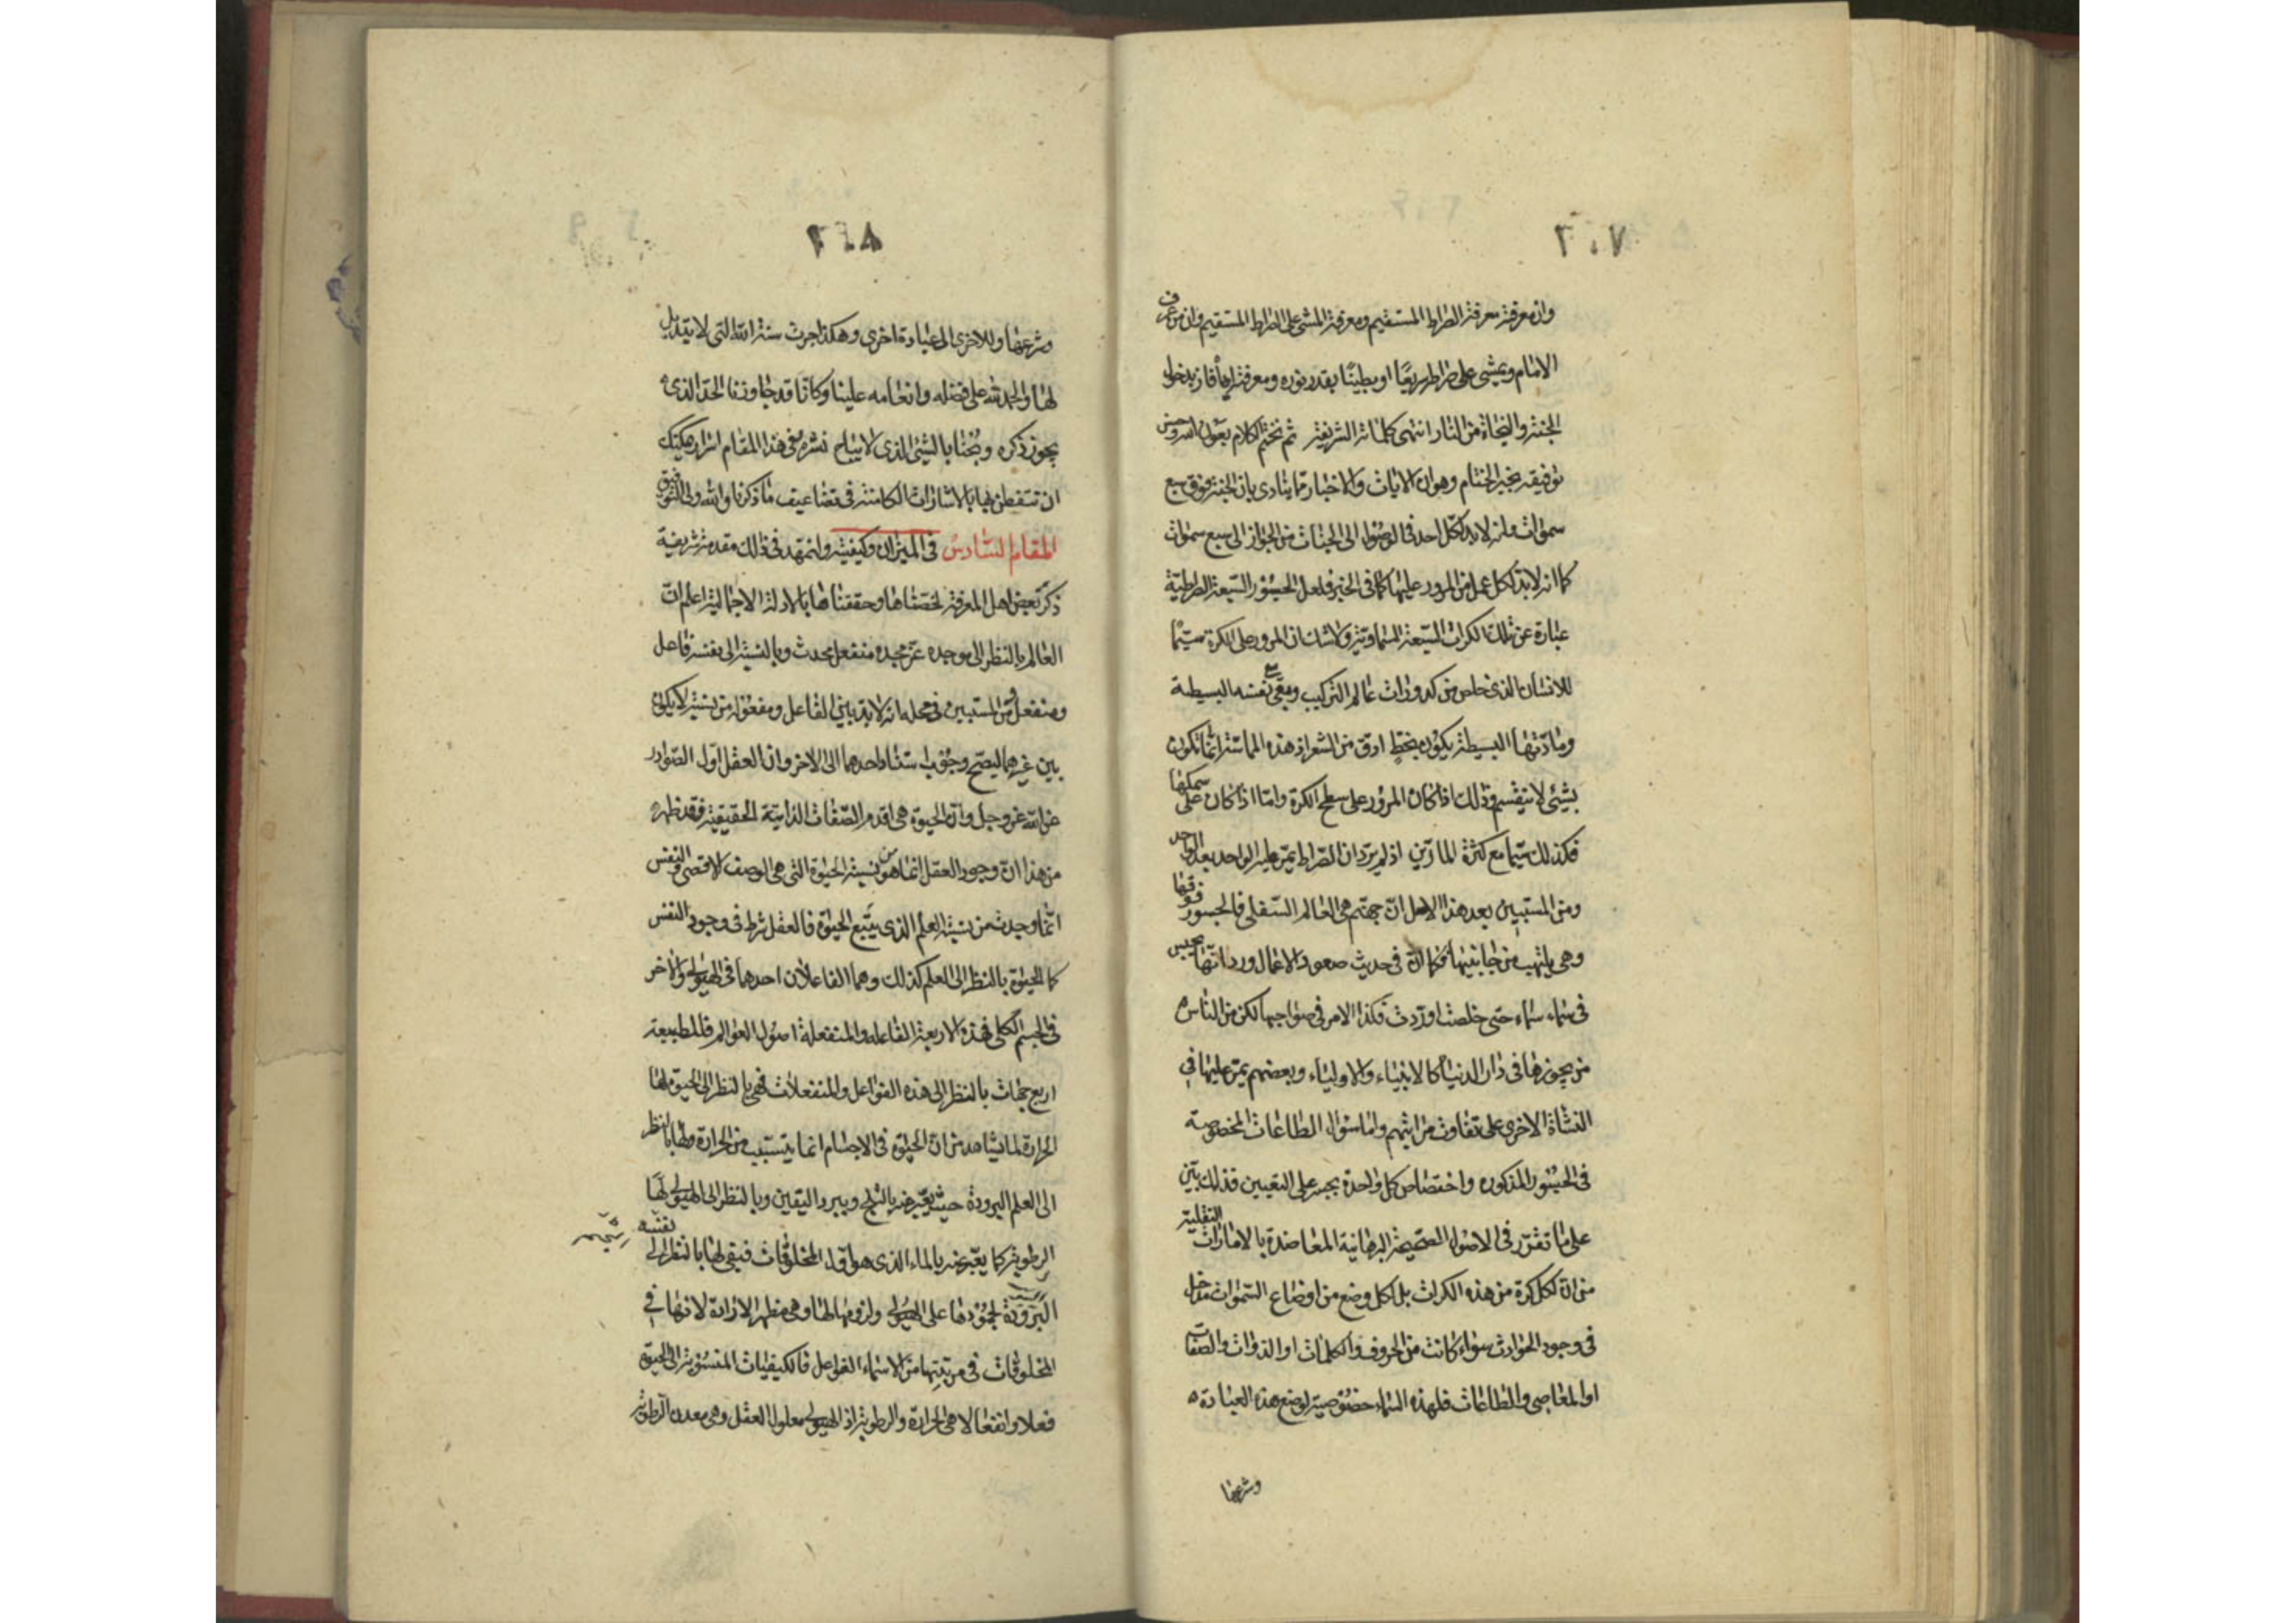 ٢٠٧
وان معرفته معرفة الصراط المستقيم ومعرفة المشى على الصراط المستقيم وان من عرف
الامام ويمشى على صراطه سريعًا او بطيئًا بقدر نوره ومعرفته اياه فاز بدخول
الجنة والنجاة من النار انتهى كلماته الشريفة ثم نختم الكلام بعون الله وحسن
توفيقه بخير الختام وهو ان الايات والاخبار مما ينادى بان الجنة فوق سبع
سموات وانه لا بد لكل احد فى الوصول الى الجنات من الجواز الى سبع سموات
كما انه لا بد لكل عمل من المرور عليها كما فى الخبر فلعل الجسور السبعة الصراطية
عبارة عن تلك الكرات السبعة السماوية ولا شك ان المرور على الكرة سيما
للانسان الذى خلص من كدورات عالم التركيب وبقى مع نفسه البسيطة
ومادتها البسيطة يكون بخطٍ ادق من الشعر اذ هذه المماسة انما تكون
بشيئ لا ينقسم وذلك اذا كان المرور على سطح الكرة واما اذا كان على سمكها
فكذلك سيما مع كثرة المارين اذ لم يرد ان الصراط يمر عليه الواحد بعد الواحد
ومن المستبين بعد هذا الاصل ان جهنم هى العالم السفلى فالجسور فوقها
وهى يلتهب من جانبيها فكما ان فى حديث صعود الاعمال ورد انها يحبس
فى سماء سماء حتى خلصت او ردت فكذا الامر فى صواحبها لكن من الناس
من يجوزها فى دار الدنيا كالانبياء والاولياء وبعضهم يمر عليها فى
النشاة الاخرى على تفاوت مراتبهم واما سؤال الطاعات المخصوصة
فى الجسور المذكوره واختصاص كل واحدة بجسر على التعيين فذلك يبتنى
على ما تقرر فى الاصول الصحيحة البرهانية المعاضدة بالامارات النقلية
من ان لكل كرة من هذه الكرات بل لكل وضع من اوضاع السموات مدخل
فى وجود الحوادث سواء كانت من الحروف والكلمات او الذوات والصفات
او المعاصى والطاعات فلهذه السماء خصوصية لوضع هذه العبادة
وشرعها
٢٠٨
وشرعها وللاخرى الى عبادة اخرى وهكذا جرت سنة الله التى لا تبديل
لها والحمد لله على فضله وانعامه علينا وكانا قد جاوزنا الحد الذى
يجوز ذكره وبُحنا بالشيئ الذى لا يباح نشره ففى هذا المقام اسرار يمكنك
ان تتفطن بها بالاشارات الكامنة فى تضاعيف ما ذكرنا والله ولى التوفيق
المقام السادس فى الميزان وكيفيته ولنمهد فى ذلك مقدمة شريفة
ذكر بعض اهل المعرفة لخصناها وحققناها بالادلة الاجمالية اعلم ان
العالم بالنظر الى موجده عز مجده منفعل محدث وبالنسبة الى نفسه فاعل
ومنفعل ومن المستبين فى محله انه لا بد بين الفاعل ومفعوله من نسبة لا يكون
بين غيرهما ليصح وجوب استناد احدهما الى الاخر وان العقل اول الصوادر
عن الله عز وجل وان الحيوة هى اقدم الصفات الذاتية الحقيقية فقد ظهر
من هذا ان وجود العقل انما هو من نسبة الحيوة التى هى الوصف الاقصى والنفس
انما وجدت من نسبة العلم الذى يتبع الحيوة فالعقل شرط فى وجود النفس
كالحيوة بالنظر الى العلم كذلك وهما الفاعلان احدهما فى الهيولى والاخر
فى الجسم الكلى فهذه الاربعة الفاعله والمنفعلة اصول العوالم فللطبيعة
اربع جهات بالنظر الى هذه الفواعل والمنفعلات فهى بالنظر الى الحيوة لها
الحرارة لما نشاهد من ان الحيوة فى الاجسام انما يتسبب من الحرارة ولها بالنظر
الى العلم البرودة حيث يعبر عنه بالثلج وببرد اليقين وبالنظر الى الهيولى لها
الرطوبة كما يعبر عنه بالماء الذى هو اول المخلوقات فبقى لها بالنظر الى نفسه
البرودة لجمودها على الهيولى ولزومها لها وهى مظهر الارادة لانها فى
المخلوقات فى مرتبتها من الاسماء الفواعل فالكيفيات المنسوبة الى الحيوة
فعلا وانفعالا هى الحرارة والرطوبة اذ الهيولى معلول العقل وهى معدن الرطوبة